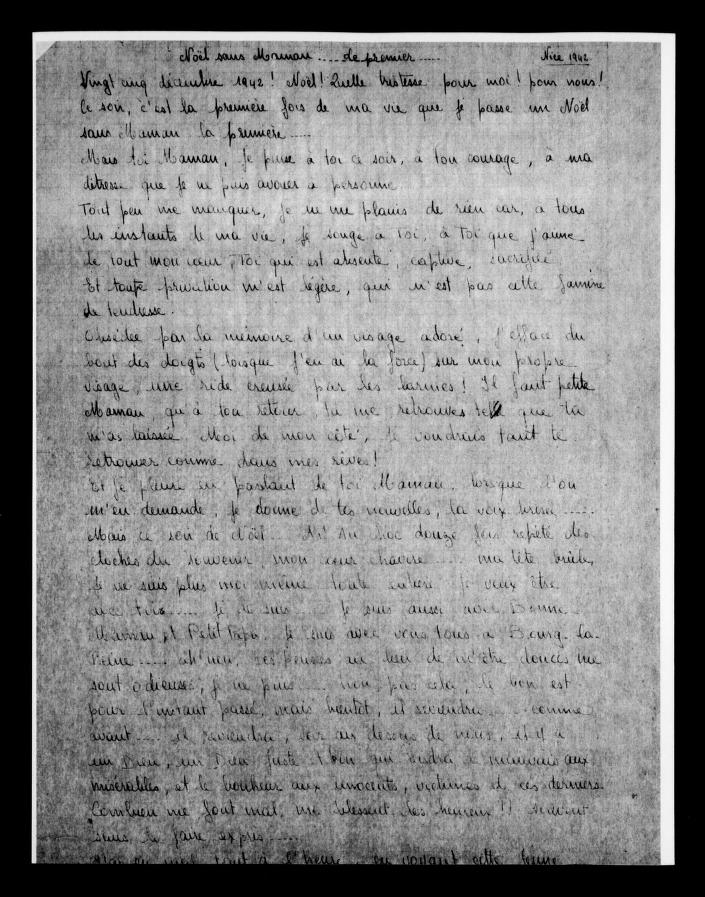 Noël sans Maman .... le premier ..... Nice 1942
Vingt cinq décembre 1942 ! Noël ! Quelle tristesse pour moi ! pour nous !
Ce soir, c'est la première fois de ma vie que je passe un Noël
sans Maman la première .....
Mais toi Maman, je pense à toi ce soir, à ton courage, à ma
détresse que je ne puis avouer à personne
Tout peu me manquer, je ne me plains de rien car, à tous
les instants de ma vie, je songe à toi, à toi que j'aime
de tout mon cœur, Toi qui est absente, captive, sacrifiée
Et toute privation m'est légère, qui n'est pas cette famine
de tendresse.
Obsédée par la mémoire d'un visage adoré, j'efface du
bout des doigts (lorsque j'en ai la force) sur mon propre
visage, une ride creusée par les larmes ! Il faut petite
Maman qu'à ton retour, tu me retrouves telle que tu
m'as laissée. Moi de mon côté, je voudrais tant te
retrouver comme dans mes rêves !
Et je pleure en parlant de toi Maman, lorsque l'on
m'en demande, je donne de tes nouvelles, la voix brisée .....
Mais ce soir de Noël ... Ah! au choc douze fois répété des
cloches du souvenir, mon cœur chavire ..... ma tête brûle,
Je ne suis plus moi même toute entière. Je veux être
avec toi ..... Je suis aussi avec Bonne
Maman et Petit Papa. Je suis avec vous tous à Bourg-La-
Reine ..... ah! non, ces pensées au lieu de m'être douces me
sont odieuses, je ne puis ..... non pas cela, le bon est
pour l'instant passé, mais bientôt, il reviendra ..... comme
avant ..... il reviendra, car au dessus de nous, il y a
un Dieu, un Dieu juste et bon qui rendra le mauvais aux
misérables, et le bonheur aux innocents, victimes de ces derniers
Combien me font mal, me blessent, les heureux !!
sans le faire exprès .....
tout à l'heure .. en voyant cette femme